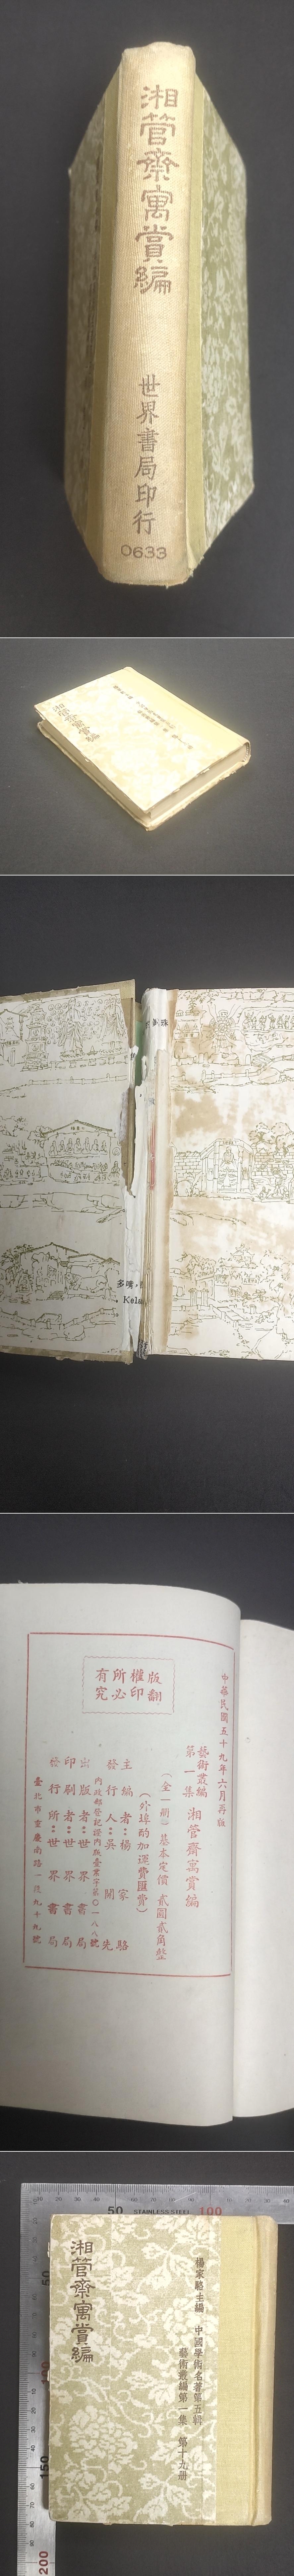 湘管齋寓賞編
世界書局印行
0633
珠
多嘴
Kola
中華民國五十九年六月再版
藝術叢編
第一集
湘管齋寓賞編
（全一冊）基本定價 貳圓貳角整
（外埠酌加運費匯費）
主編者：楊家駱
發行人：吳開先
出版者：世界書局
印刷者：世界書局
發行所：世界書局
臺北市重慶南路一段九十九號
版權所有
翻印必究
50 STAINLESS STEEL 100
50
150
200
楊家駱主編 中國學術名著第五輯
藝術叢編第一集 第十九冊
湘管齋寓賞編